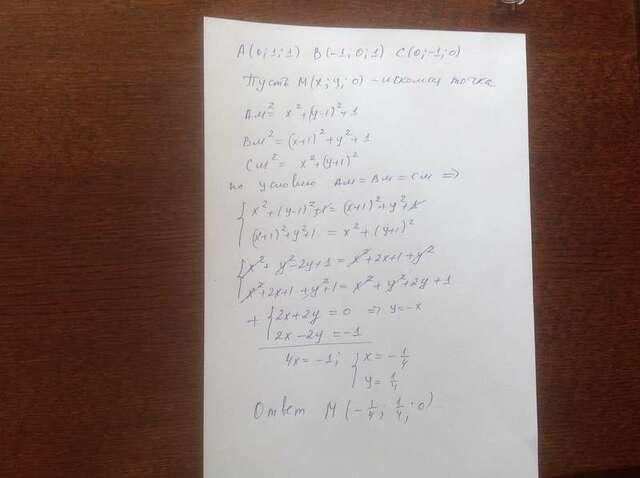 A(0;1;1) B(-1;0;1) C(0;-1;0)
Пусть M(x;y;0) - искомая точка
AM²= x²+(y-1)²+1
BM²=(x+1)²+y²+1
CM²= x²+(y+1)²
по условию AM=BM=CM ⇒
{ x²+(y-1)²+1=(x+1)²+y²+1
(x+1)²+y²+1 = x²+(y+1)²
{ x²+y²-2y+1 = x²+2x+1+y²
x²+2x+1+y²+1= x²+y²+2y+1
+ { 2x+2y=0 ⇒ y=-x
2x-2y=-1
4x=-1; { x=-1/4
y=1/4
Ответ M(-1/4; 1/4; 0)